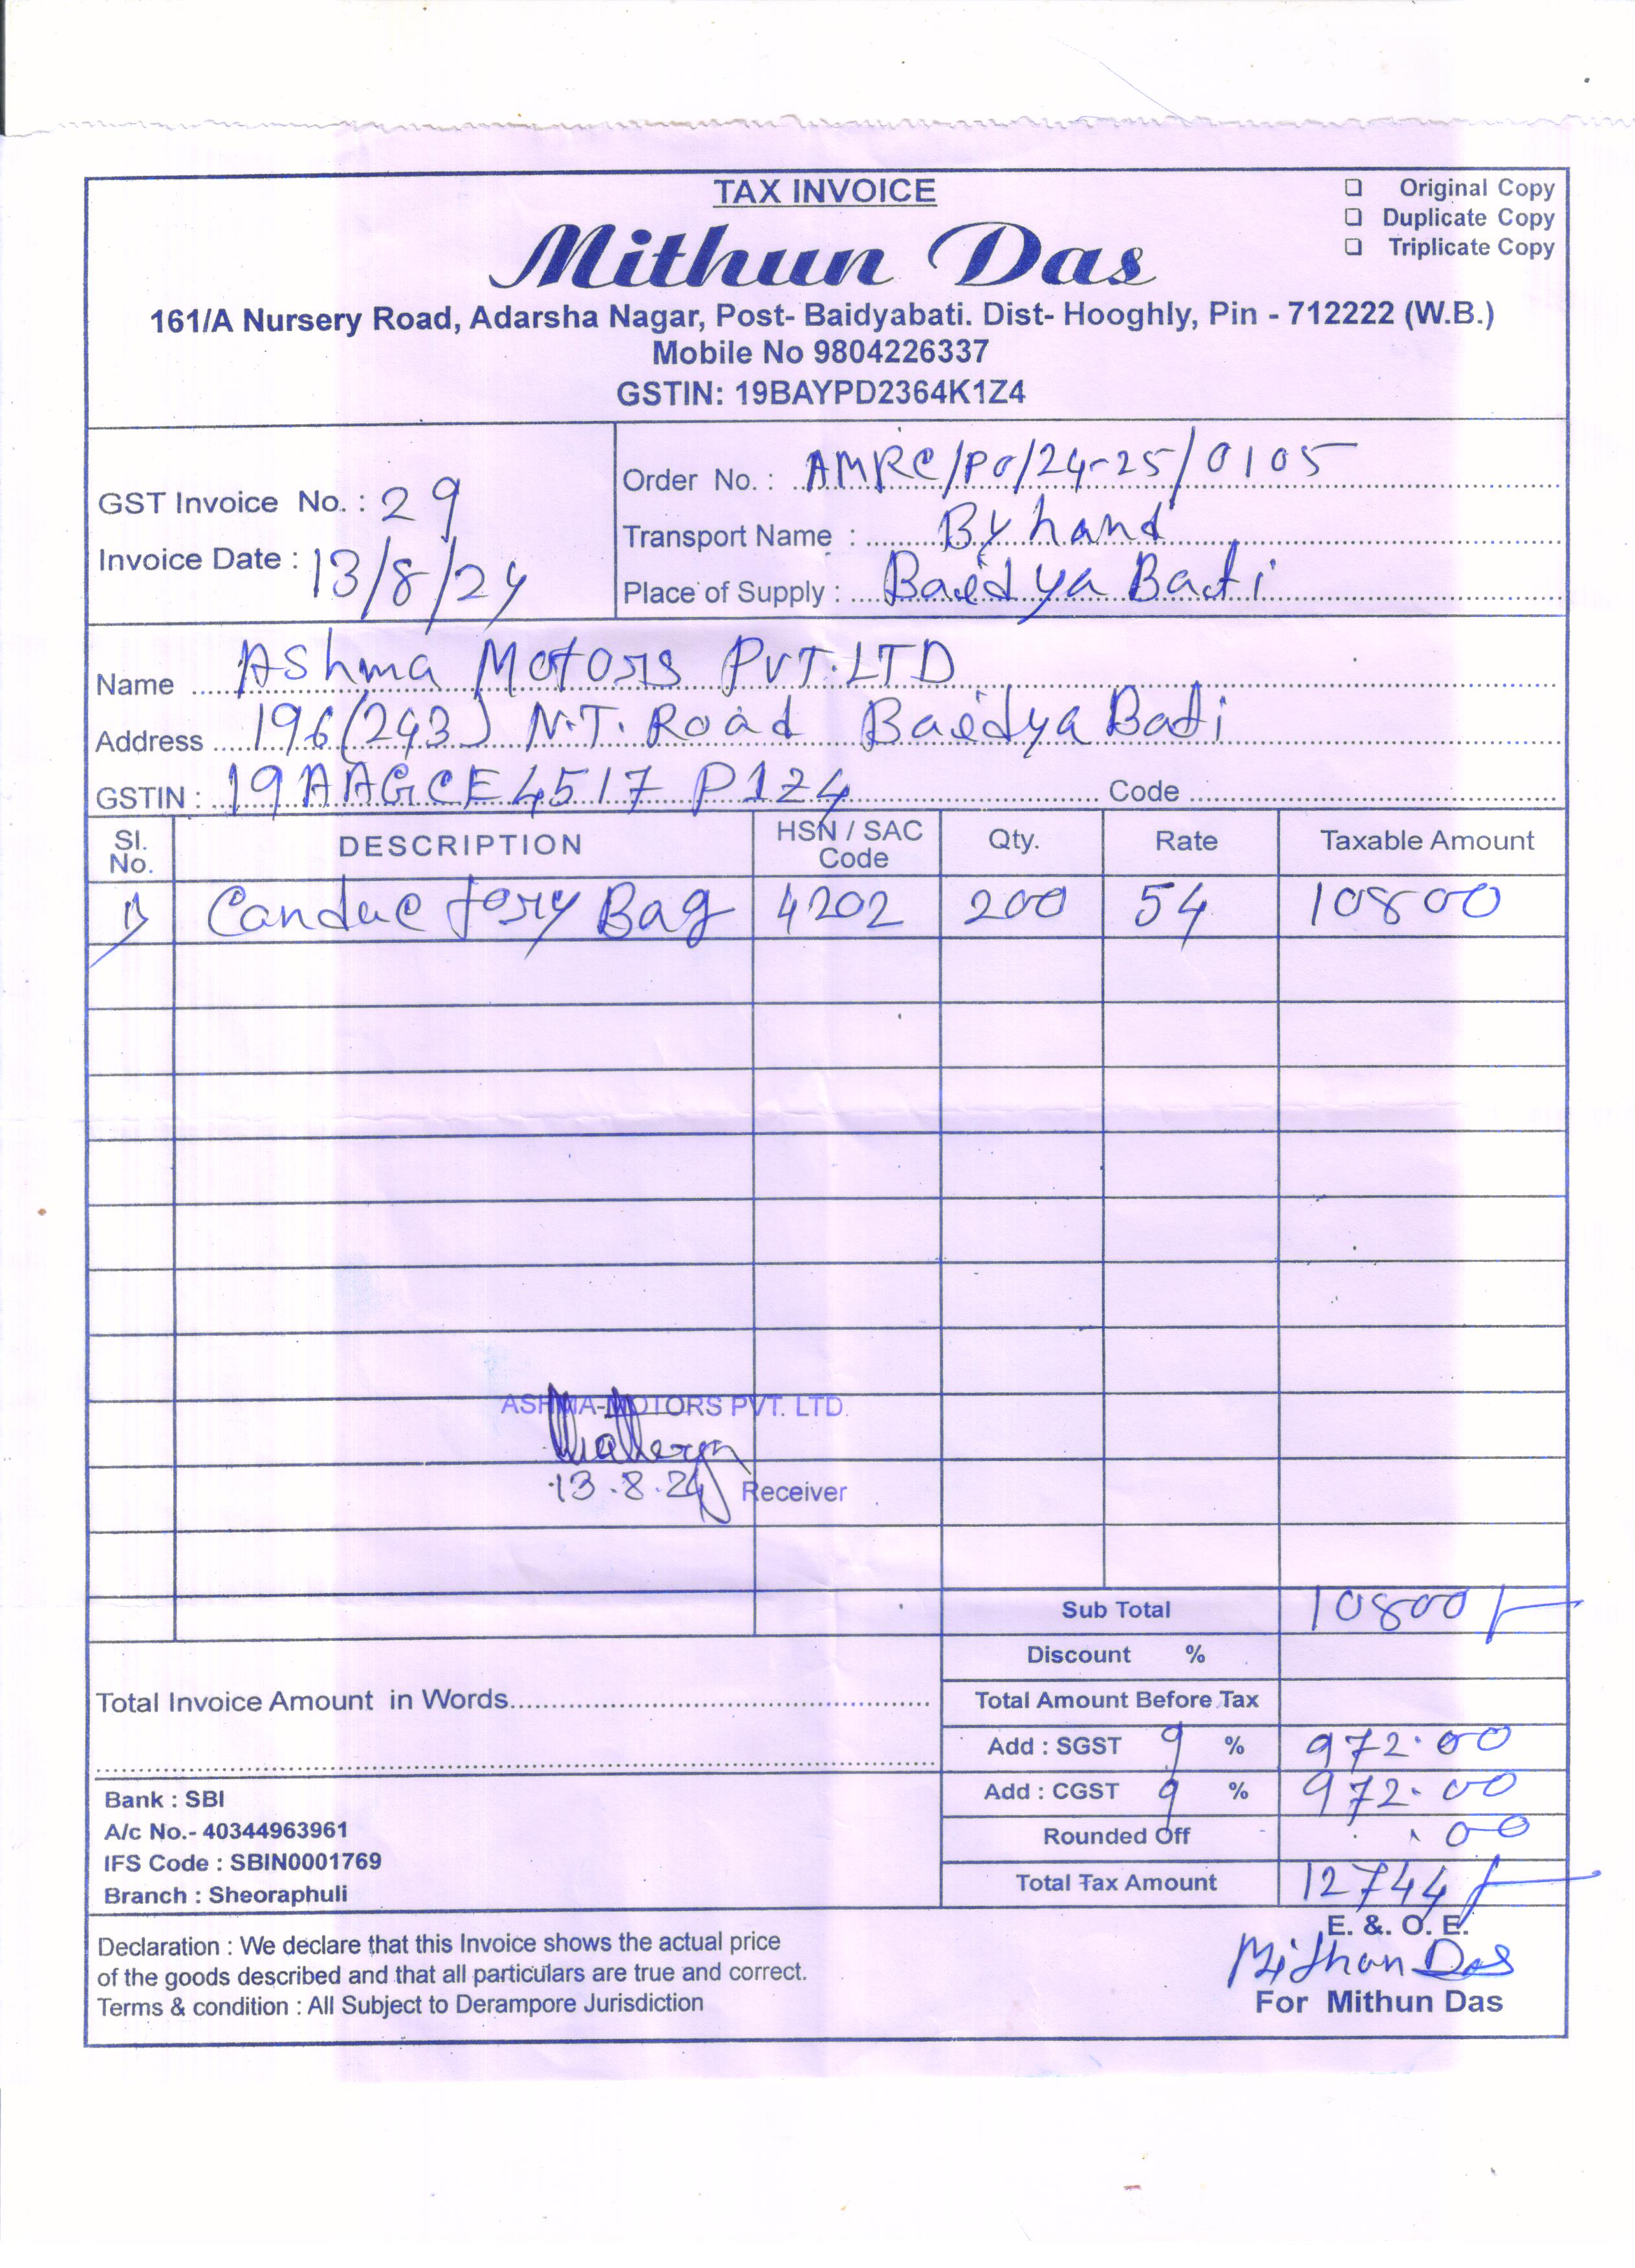 TAX INVOICE
Original Copy
Duplicate Copy
Triplicate Copy
Mithun Das
161/A Nursery Road, Adarsha Nagar, Post- Baidyabati. Dist- Hooghly, Pin - 712222 (W.B.)
Mobile No 9804226337
GSTIN: 19BAYPD2364K1Z4
GST Invoice No. : 29
Invoice Date : 13/8/24
Order No. : AMRC/PO/24-25/0105
Transport Name : By hand
Place of Supply : Baidya Bati
Name Ashma Motors PVT. LTD
Address 196(243) N.T. Road Baidya Bati
GSTIN : 19AAGCE4517P1Z4 Code
Sl. No. DESCRIPTION HSN / SAC Code Qty. Rate Taxable Amount
1) Conductory Bag 4202 200 54 10800
ASHMA MOTORS PVT. LTD.
13.8.24 Receiver
Sub Total 10800/-
Discount %
Total Invoice Amount in Words
Total Amount Before Tax
Add : SGST 9 % 972.00
Add : CGST 9 % 972.00
Rounded Off .00
Total Tax Amount 12744/-
Bank : SBI
A/c No.- 40344963961
IFS Code : SBIN0001769
Branch : Sheoraphuli
E. &. O. E.
Declaration : We declare that this Invoice shows the actual price
of the goods described and that all particulars are true and correct.
Terms & condition : All Subject to Derampore Jurisdiction
Mithun Das
For Mithun Das